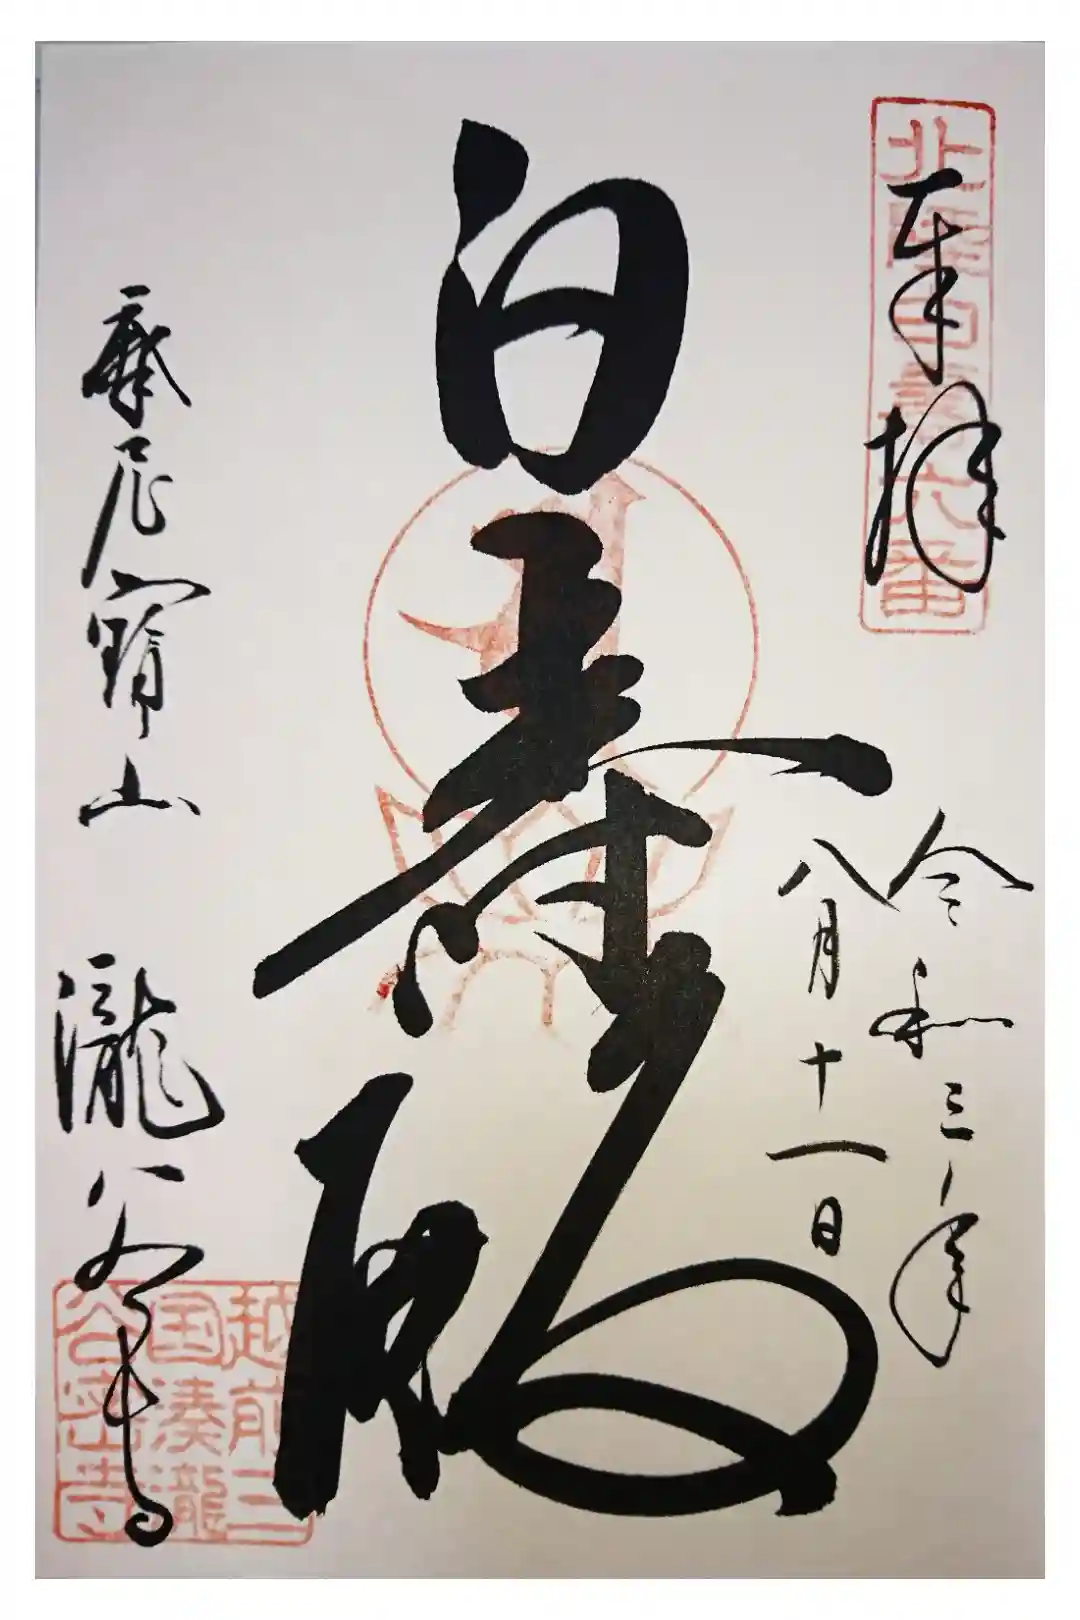 奉拝
北陸白寿六番
令和三年
八月十一日
白寿殿
摩尼寳山 瀧谷寺
越前三
国湊瀧
谷密寺